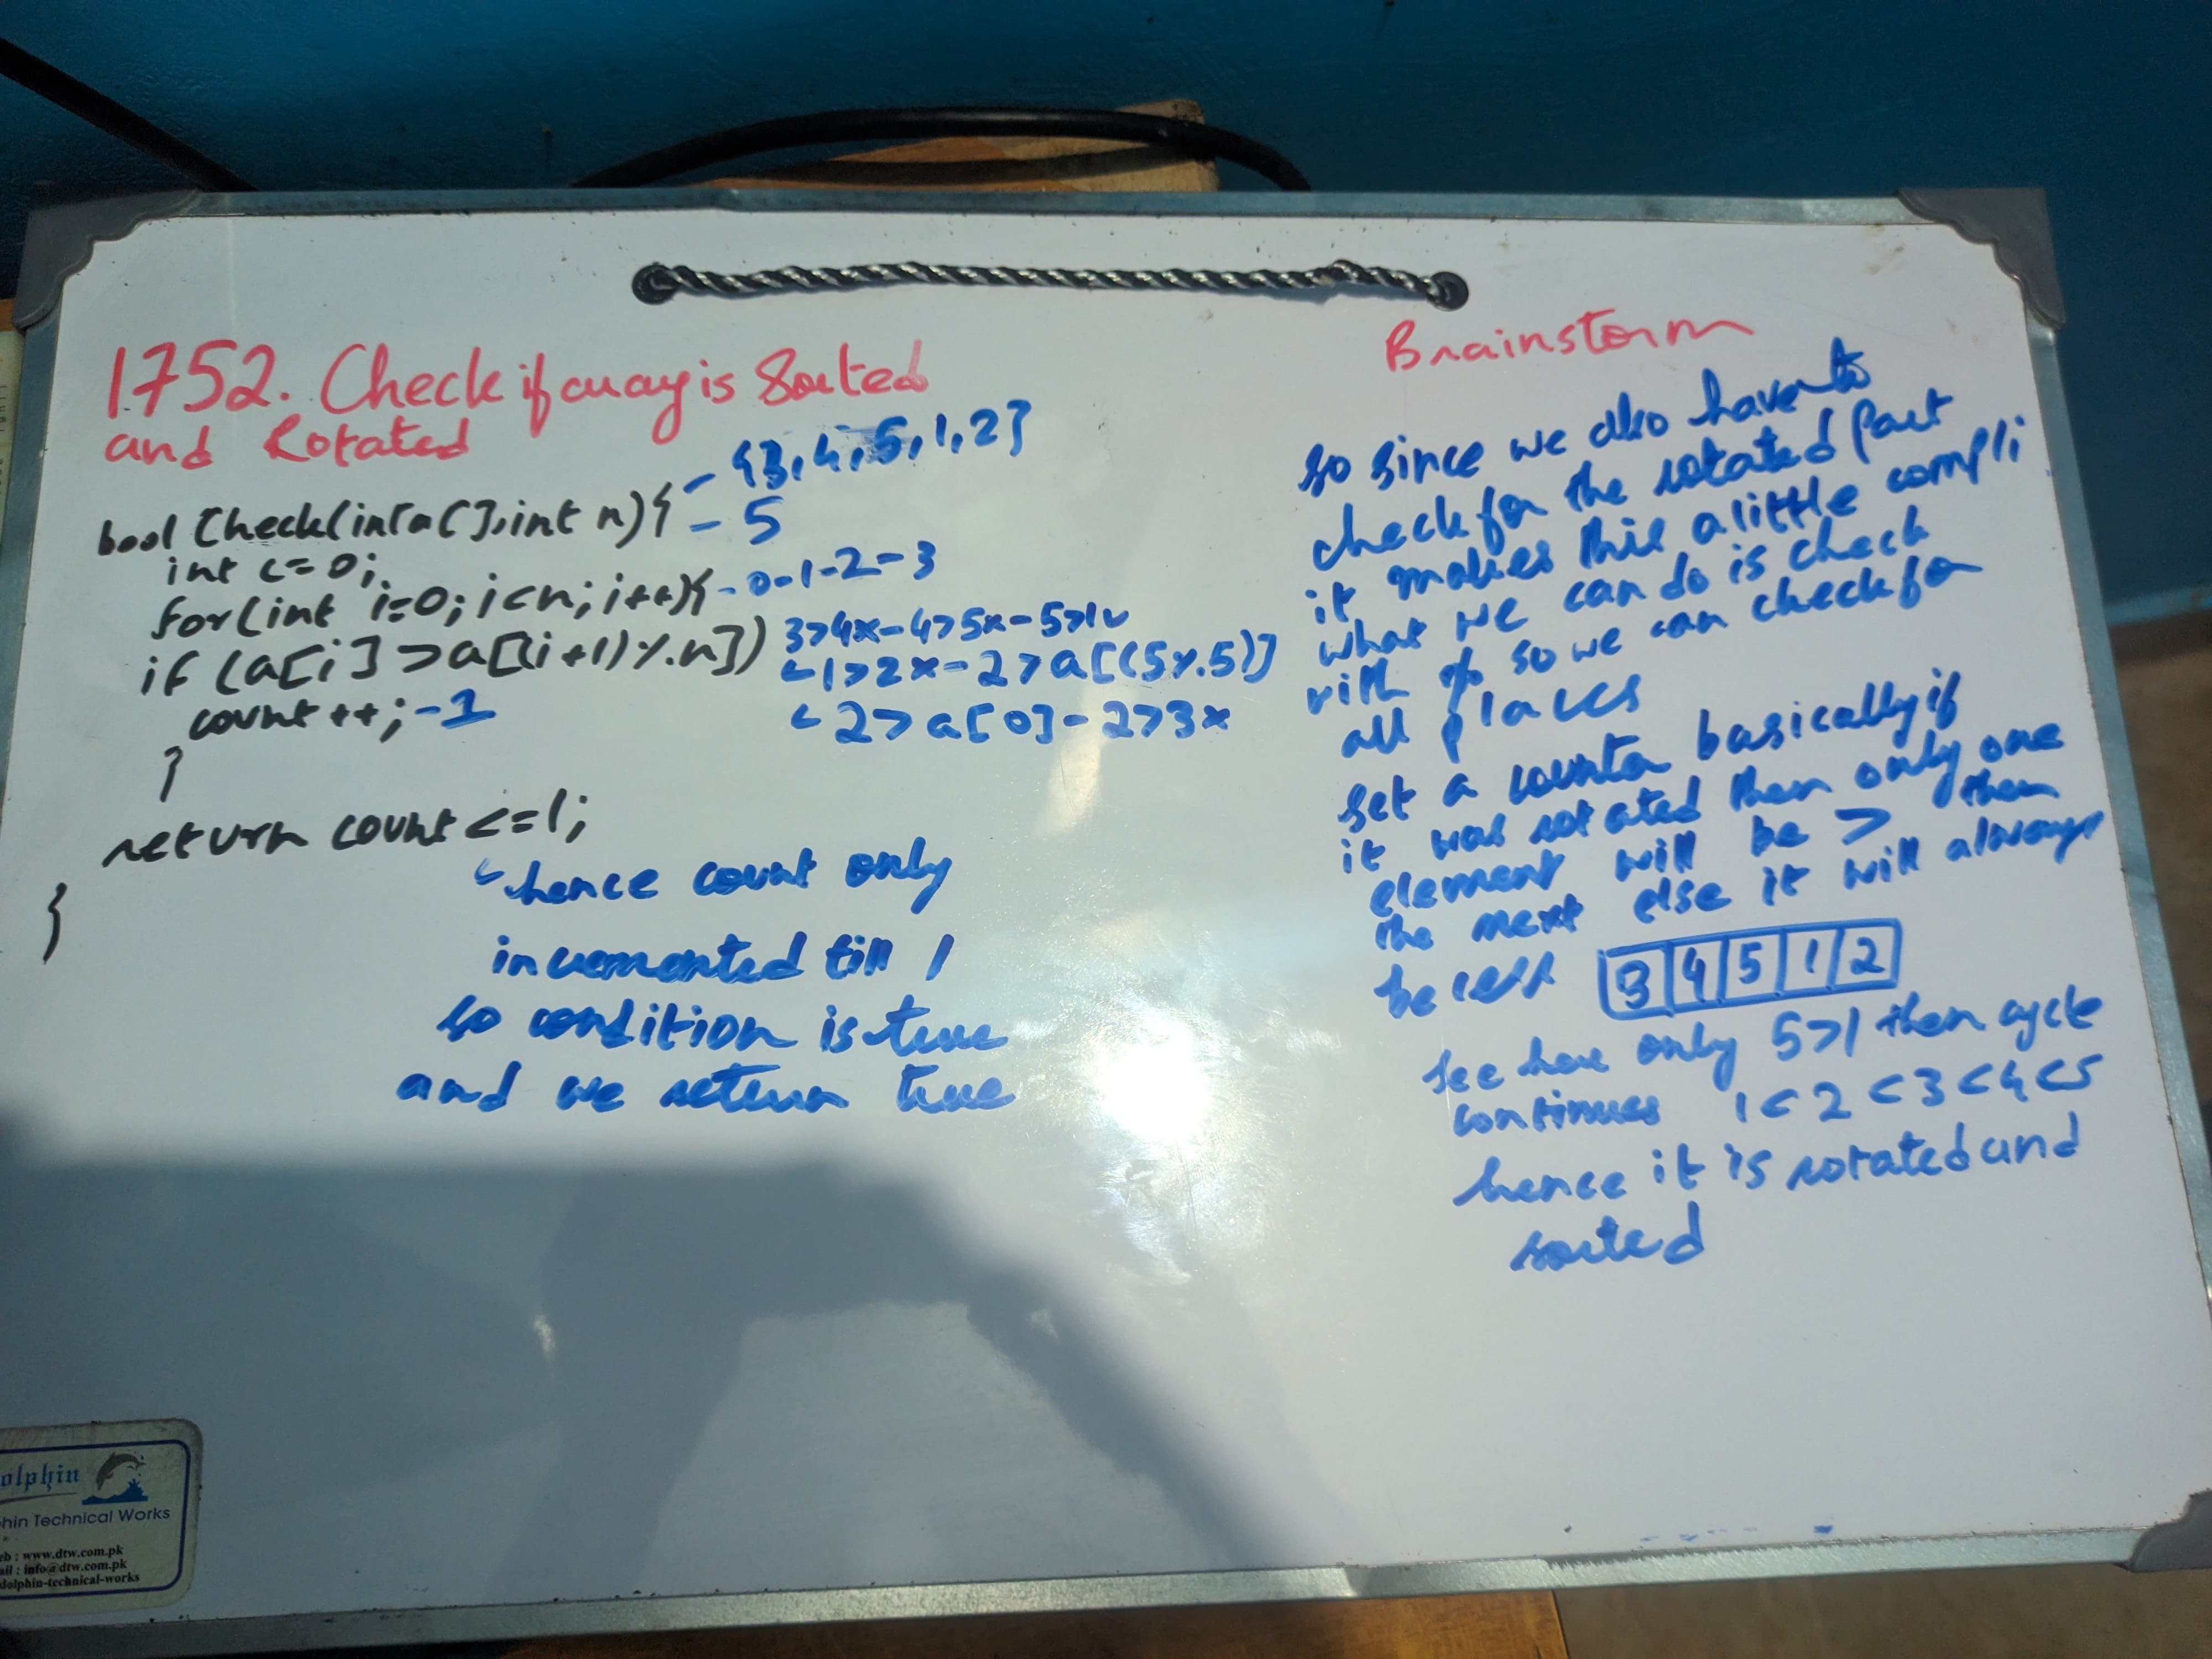 1752. Check if array is Sorted
and Rotated
bool Check(int a[], int n){ - {3,4,5,1,2}
- 5
int c=0;
for(int i=0; i<n; i++){ - 0-1-2-3
if (a[i] > a[(i+1)%n]) 3>4x-4>5x-5>1✓
1>2x-2>a[(5%.5)]
count++; -1
2>a[0]-2>3x
}
return count <=1;
hence count only
incremented till 1
so condition is true
and we return true
}
Brainstorm
so since we also have to
check for the rotated part
it makes this a little compli
what we can do is check
with % so we can check for
all places
set a counter basically if
it was rotated then only one
element will be > then
the next else it will always
be less
3 4 5 1 2
see here only 5>1 then cycle
continues 1<2<3<4<5
hence it is rotated and
sorted
olphin
hin Technical Works
eb : www.dtw.com.pk
ail : info@dtw.com.pk
dolphin-technical-works